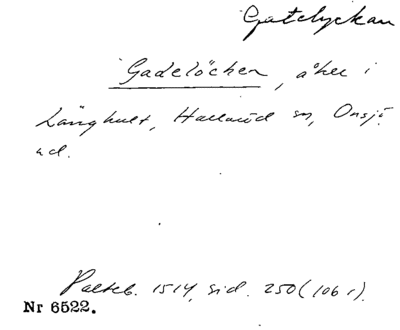 Gatelyckan
Gadelöcken, åker i
Långhult, Hallaröd sn, Onsjö
hd.
Palteb. 1514, sid. 250 (106 r).
Nr 6522.